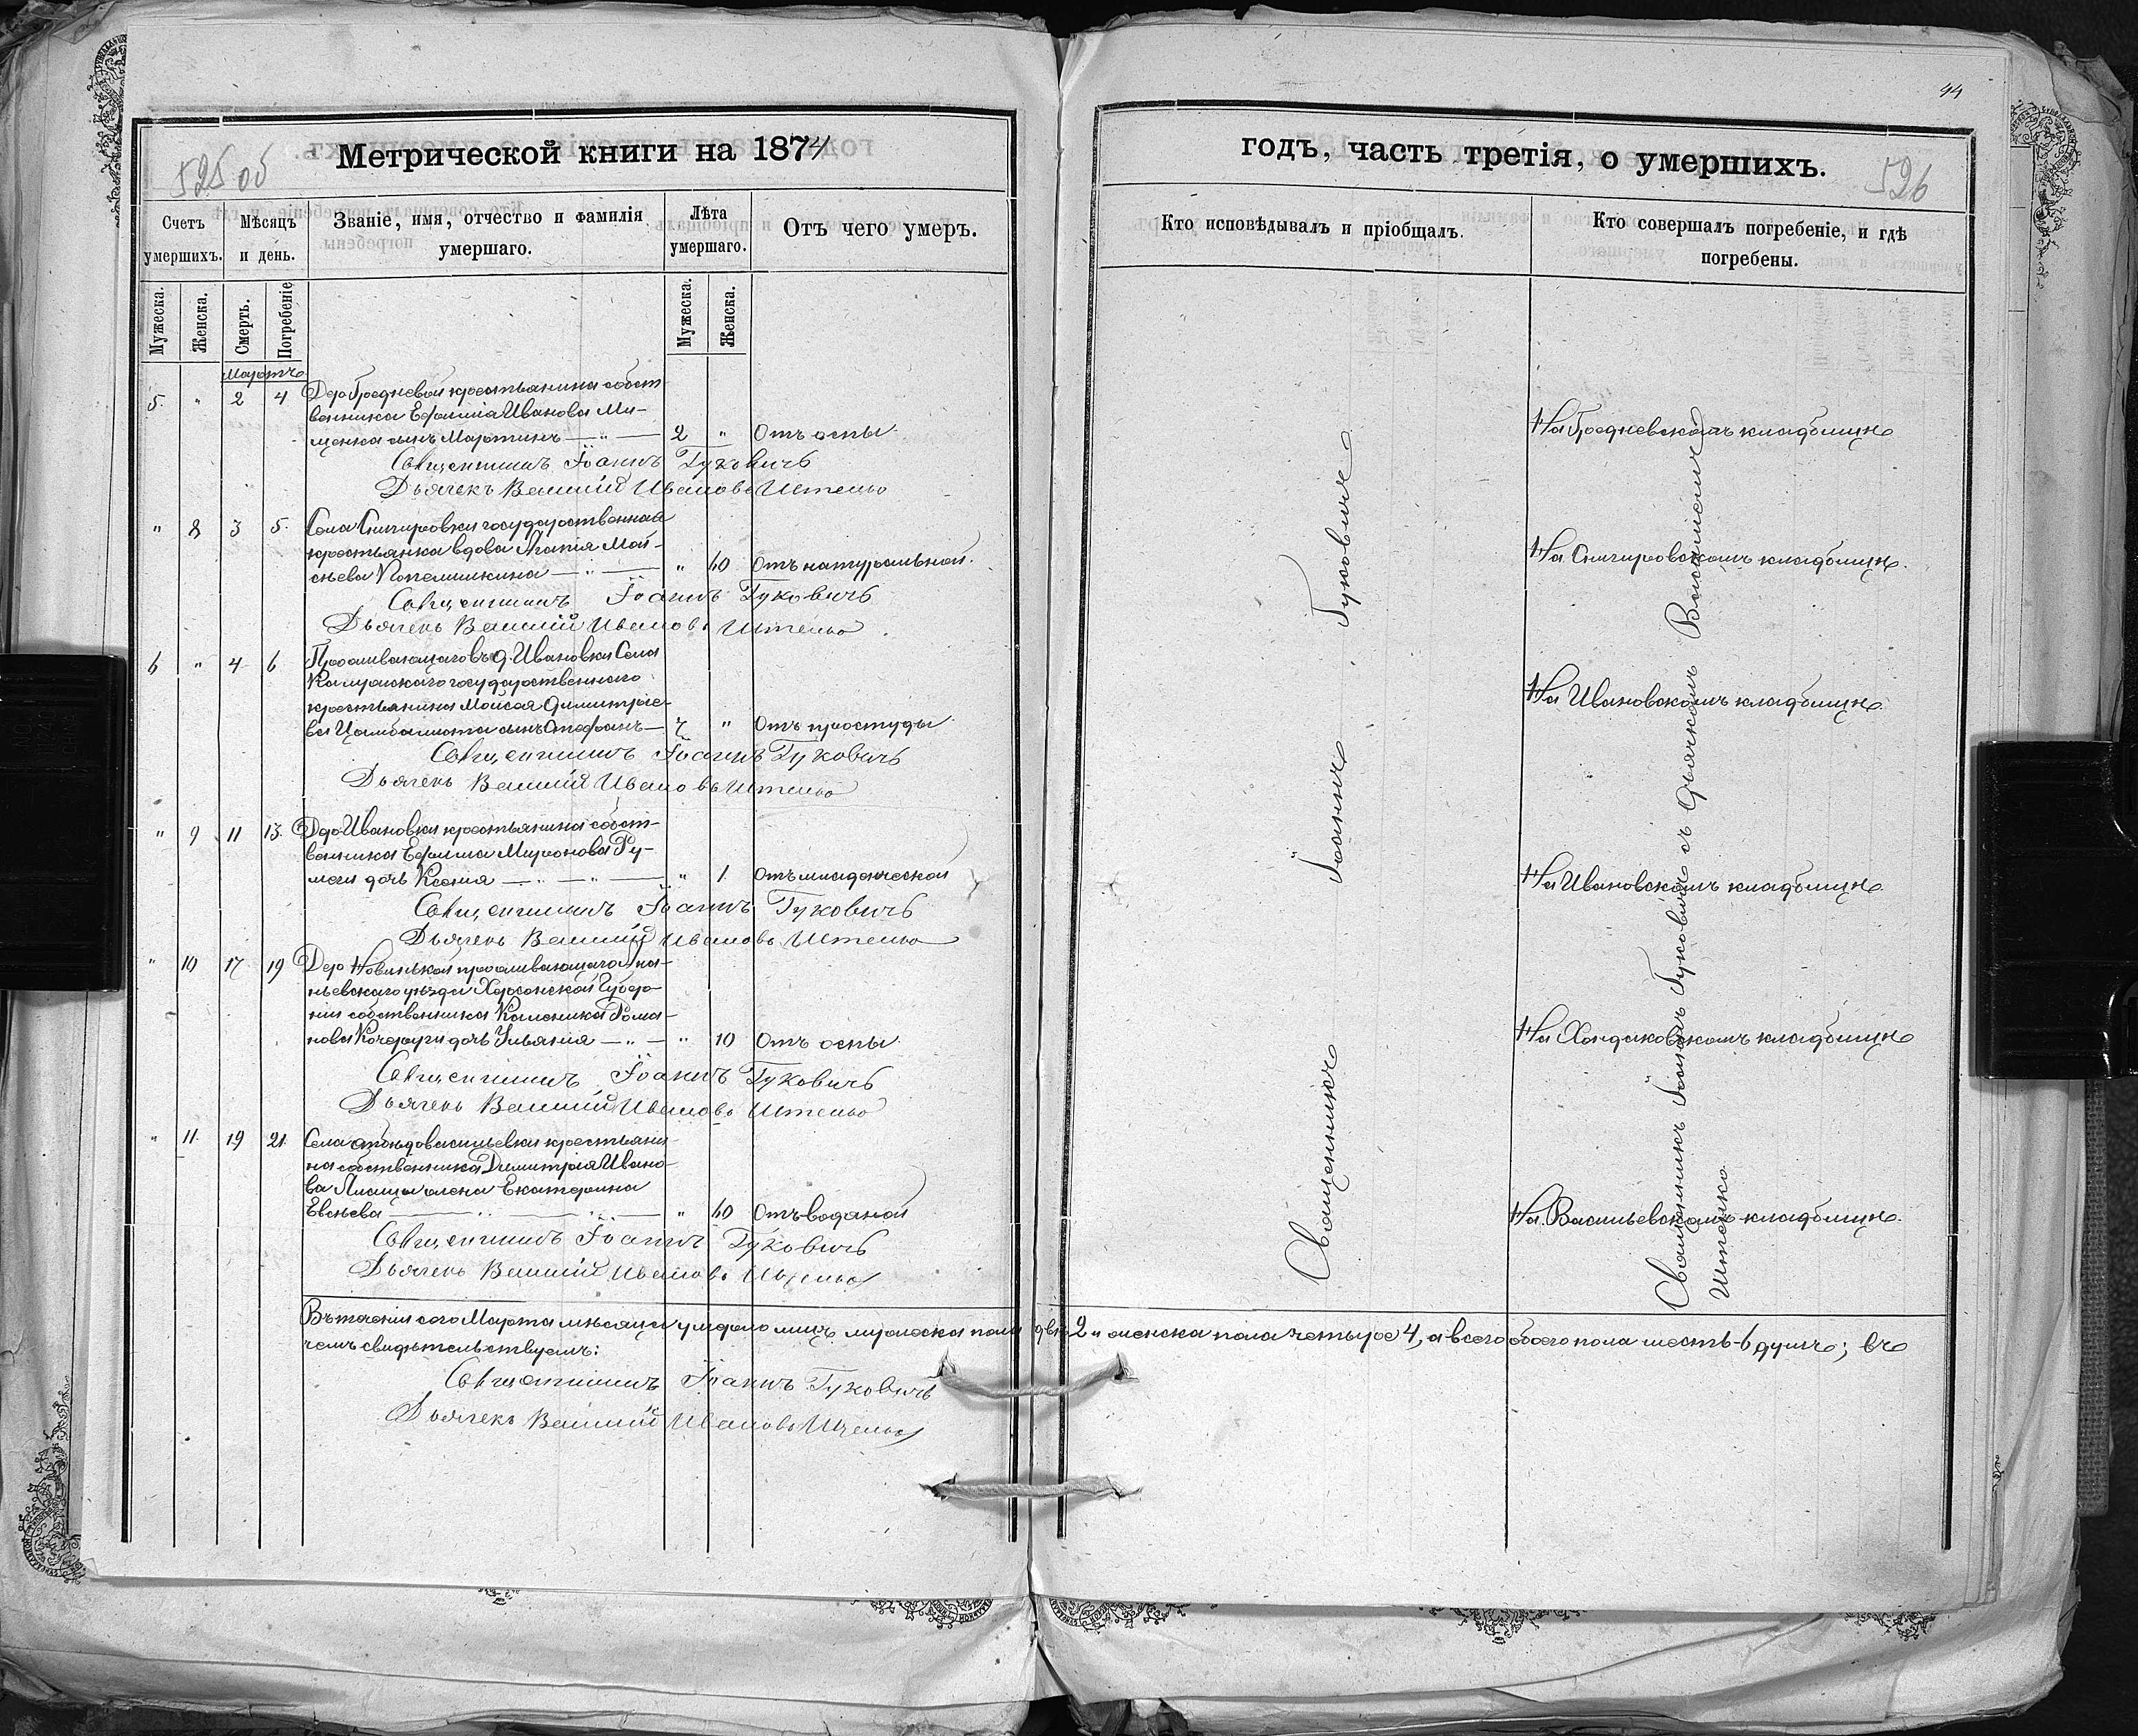 44
Метрической книги на 1874
525 об
годъ, часть третія, о умершихъ.
526
Счетъ умершихъ.
Мѣсяцъ и день.
Званіе, имя, отчество и фамилія умершаго.
Лѣта умершаго.
Отъ чего умеръ.
Кто исповѣдывалъ и пріобщалъ.
Кто совершалъ погребеніе, и гдѣ погребены.
Мужеска.
Женска.
Смерть.
Погребеніе
Мужеска.
Женска.
Мартъ
5. " 2 4 Дер Гредневой крестьянина собст
венника Ефимія Иванова Ми-
щенка сынъ Мартинъ — " — 2 " Отъ оспы.
На Гредневскомъ кладбищѣ
Священникъ Іоаннъ Гуковичъ
Дьячекъ Василій Ивановъ Штенко
" 8 3 5. Села Снигировки государственная
крестьянка вдова Агапія Мой-
сѣева — " — " 60 Отъ натуральной.
На Снигировскомъ кладбищѣ.
Священникъ Іоаннъ Гуковичъ
Дьячекъ Василій Ивановъ Штенко
6 " 4 6 Проживающаго въ д. Ивановки Села
государственнаго
крестьянина Мойсея Димитріе-
ва Цымбалиста сынъ Стефанъ — " Отъ простуды
На Ивановскомъ кладбищѣ.
Священникъ Іоаннъ Гуковичъ
Дьячекъ Василій Ивановъ Штенко
" 9 11 13. Дер Ивановки крестьянина собст-
венника Ефима Миронова Ру-
дочь Ксенія — " — " — " 1. Отъ младенческой
На Ивановскомъ кладбищѣ
Священникъ Іоаннъ Гуковичъ
Дьячекъ Василій Ивановъ Штенко
" 10 17 19 Дер проживающаго Ана-
ньевскаго уѣзда Херсонской Губер
ніи собственника Каленика Рома-
нова Кочерги дочь Ульянія — " — " 10 Отъ оспы
На кладбищѣ
Священникъ Іоаннъ Гуковичъ
Дьячекъ Василій Ивановъ Штенко
" 11. 19 21. Села крестьяни
на собственника Димитрія Ивано-
ва жена Екатерина
Евсѣева — " — " — " 60 Отъ водяной
На Васильевскомъ кладбищѣ.
Священникъ Іоаннъ Гуковичъ
Дьячекъ Василій Ивановъ Штенко
Священникъ Іоаннъ Гуковичъ
Священникъ Іоаннъ Гуковичъ съ дьячкомъ Василіемъ
Штенко.
Въ теченіи сего Марта мѣсяца умерло лицъ мужеска пола два 2 и женска пола четыре 4, а всего обоего пола шесть-6 душъ; въ
чемъ свидѣтельствуемъ:
Священникъ Іоаннъ Гуковичъ
Дьячекъ Василій Ивановъ Штенко